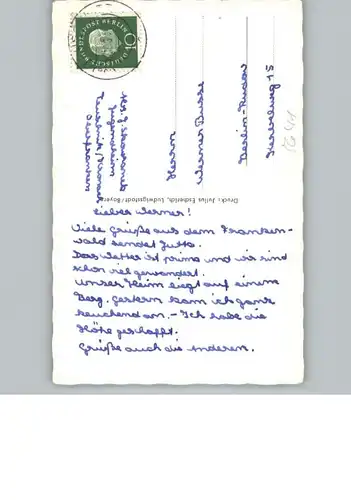 DEUTSCHE BUNDESPOST BERLIN
10
Herrn
Werner Busse
Berlin-Rudow
15
Druck: Julius Escherich, Ludwigsstadt/Bayern
Lieber Werner!
Viele Grüße aus dem Franken-
wald sendet Jutta.
Das Wetter ist prima und wir sind
schon viel gewandert.
Unser Heim liegt auf einem
Berg. Gestern kam ich ganz
keuchend an. - Ich habe die
Höhe geschafft.
Grüße auch die Anderen.